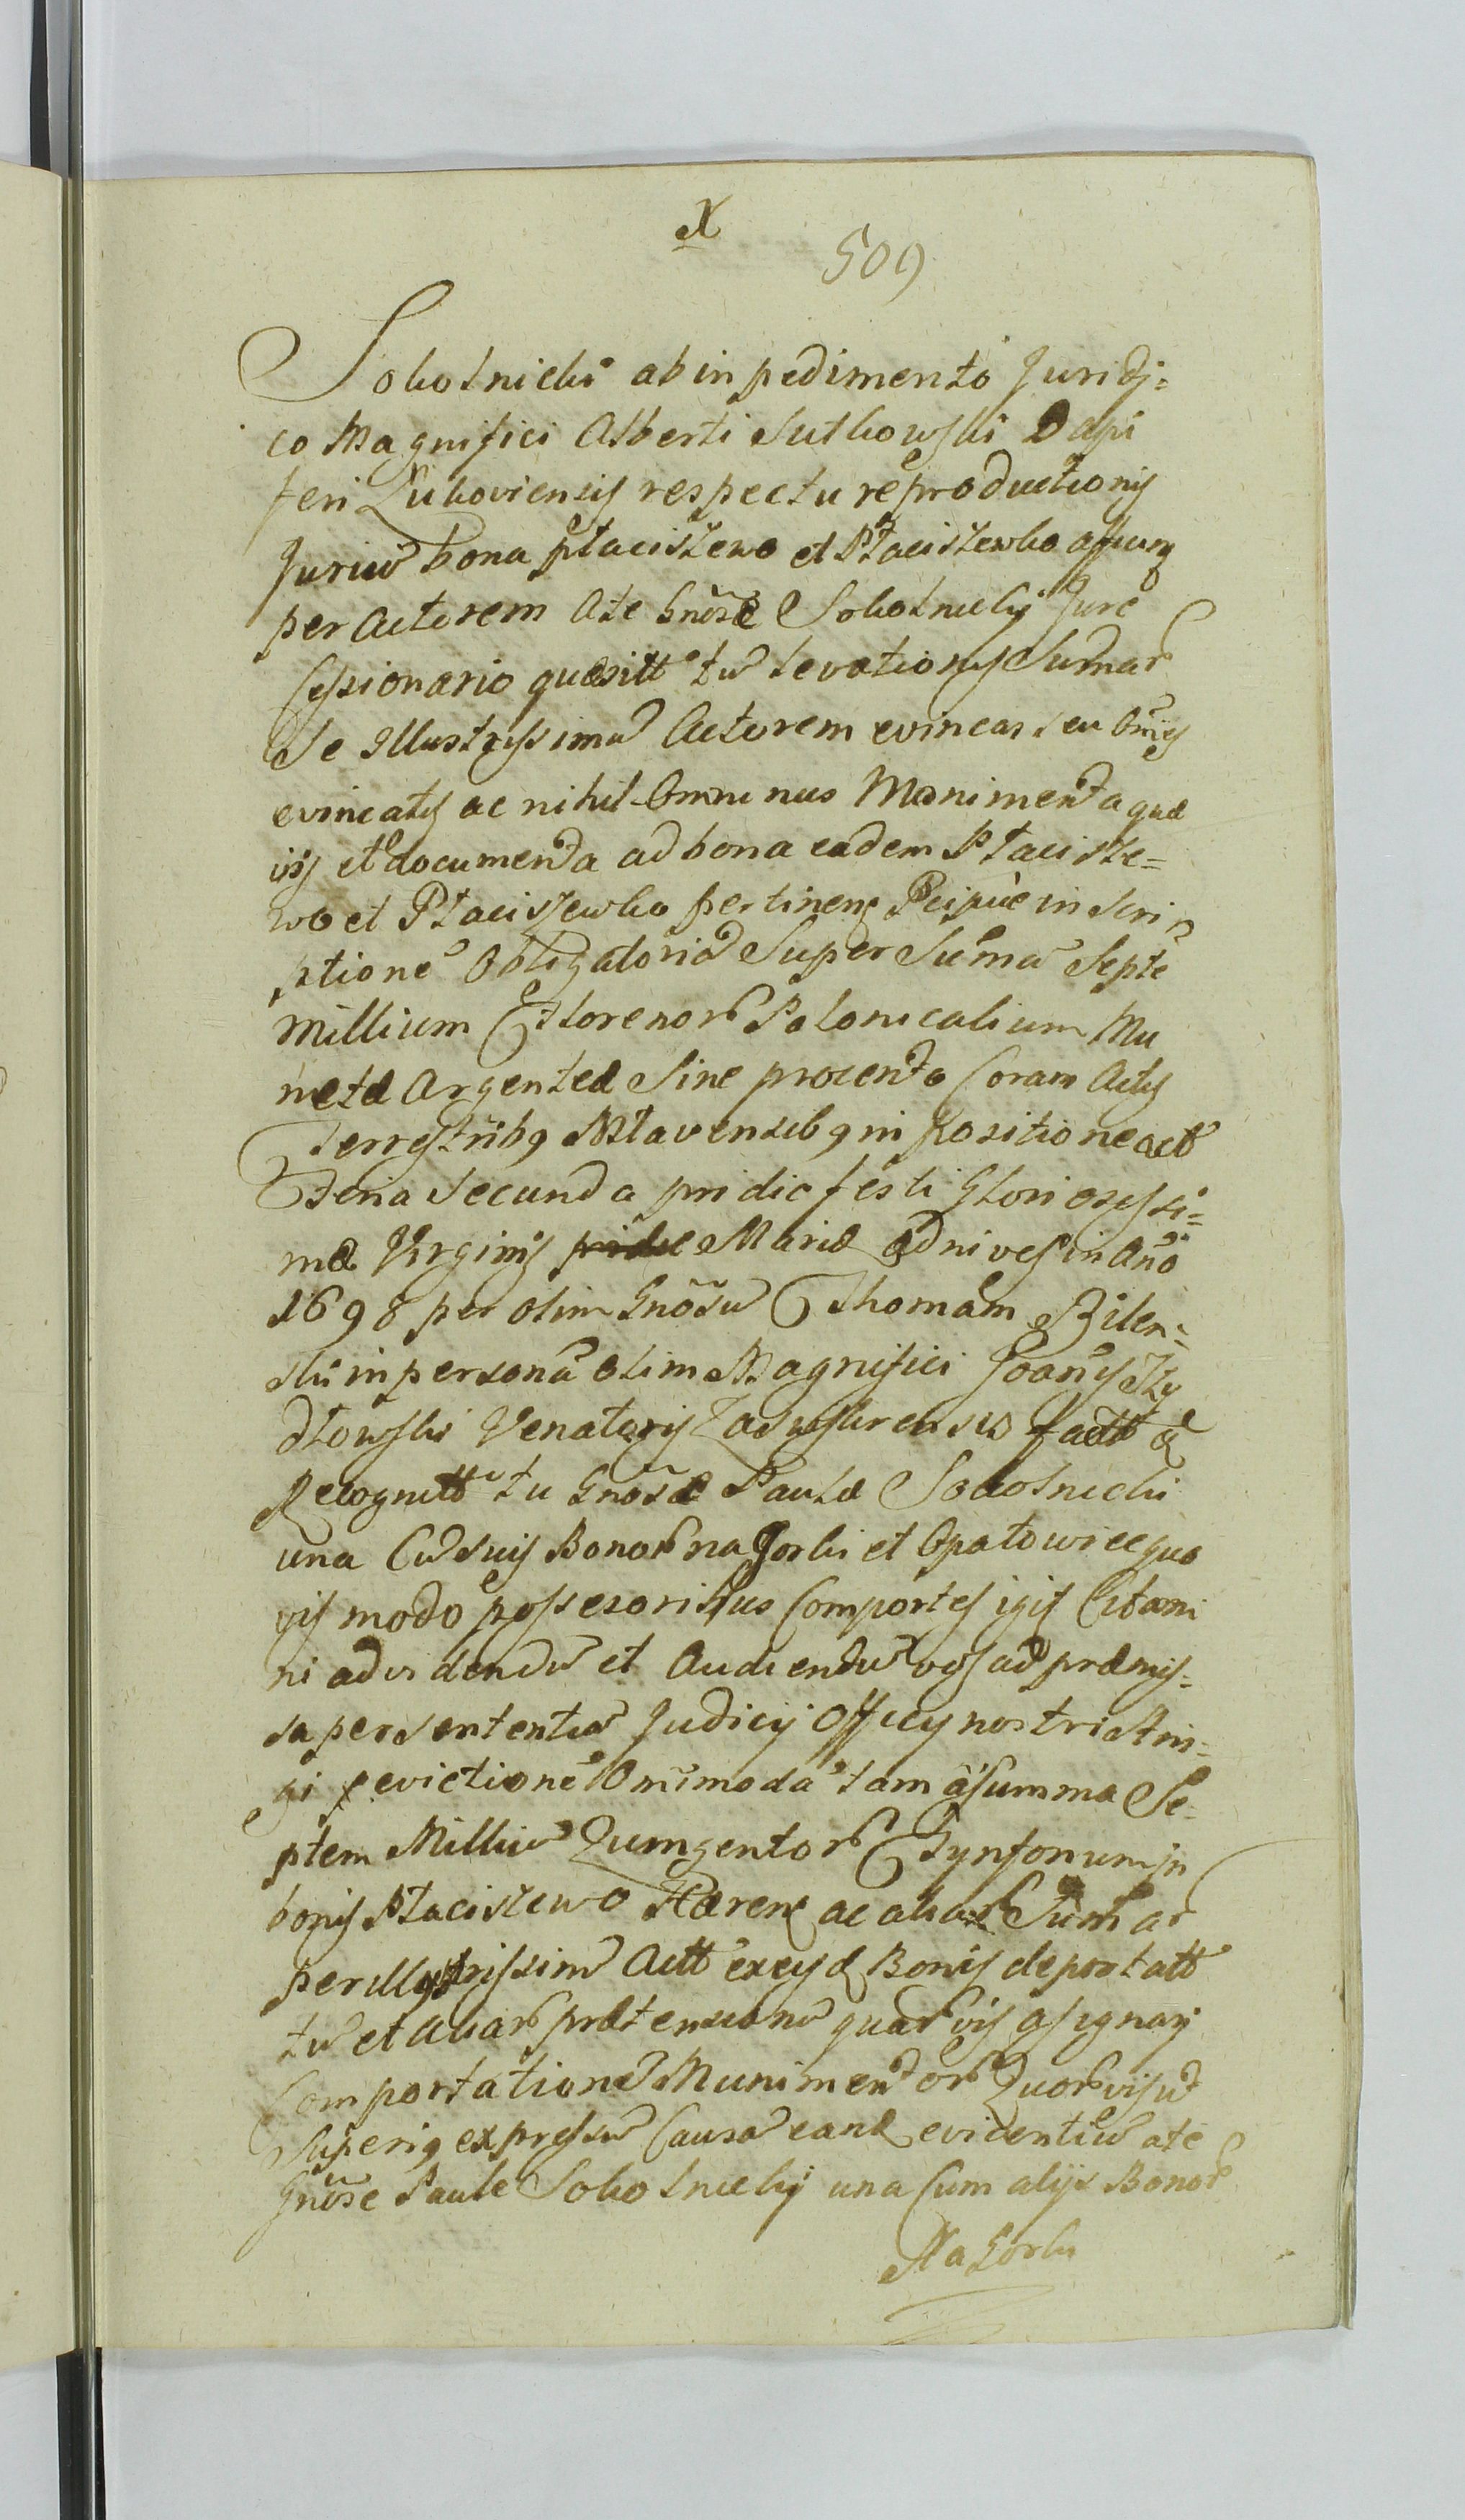 X
509
Sokolnicki ab inpedimento Juridj=
co Magnifici Alberti Sutkowski Dapi
feri Lukoviensis respectu reproductionis
Juriũ bona Ptaciszewo et Ptaciszewko
per Actorem Ate Gnõsæ Sokolnicky Jure
Cessionario quæsitt tũ levationis Sum̃ar
Se Illustrissimũ Actorem evincas seu
evincatis ac nihil ominus Munimenta quæ
vis et documenta ad bona eadem Ptacisze=
wo et Ptaciszewko pertinen Pcipue in scri
ptionẽ Obligatoriã Super Sum̃ã Septẽ
Millium Florenor Polonicalium Mu
netæ Argenteæ Sine procento Coram Actis
Terrestribq Mlavensibq in positione act
Feria Secunda pridie festi Gloriosissi=
mæ Virginis Mariæ ad nives in Anõ
1698 per olim Gnõsũ Thomam Bilen=
ski in personã olim Magnifici Joan̄is Szy
dłowski Venatoris Zaswskrensis factt &
Recognitt tu Gnõsæ Paulæ Sokolnicki
una Cũ suis Bonor na Gorki et Opatowiec quo
vis modo possesoribus Comportes igis Citami
ni ad videndũ et Audiendũ vos ad præmis=
sa per sententiã Judicij Officij nostri Stri=
gi evictionẽ Om̃imodã tam a summa Se=
ptem Milliũ Quingentor Tynfonum in
bonis Ptaciszewo Hæren ac aliar Sum̃ar
per Illustrissimũ Actt ex eisd Bonis deportatt
tũ et aliar prætensionũ quarvis asignarj
Comportationẽ Munimentor Quorvis ut
Superiq expressũ Causã eand evidentiũ ate
Gnõse Paule Sokolnicky una Cum alijs Bonor
Na Gorki